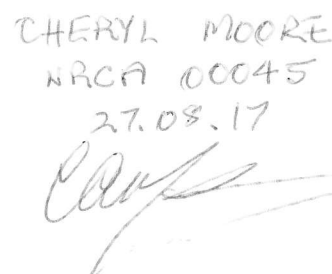 CHERYL MOORE
NRCA 00045
27.08.17